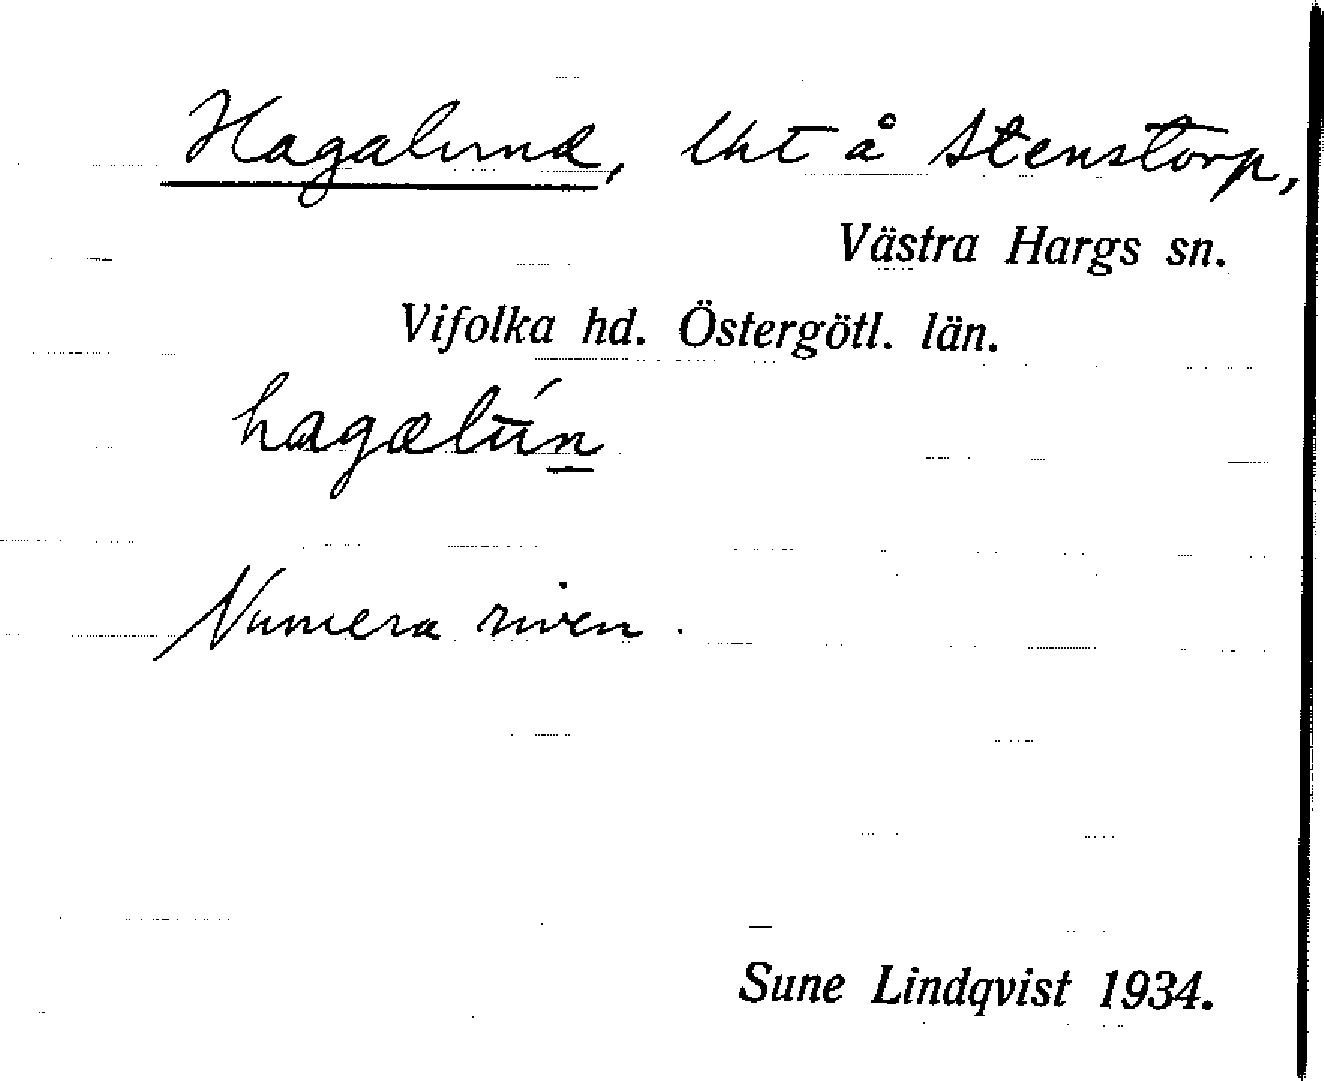 Hagalund, lht å Stenstorp,
Västra Hargs sn.
Vifolka hd. Östergötl. län.
hagælún
Numera riven.
Sune Lindqvist 1934.